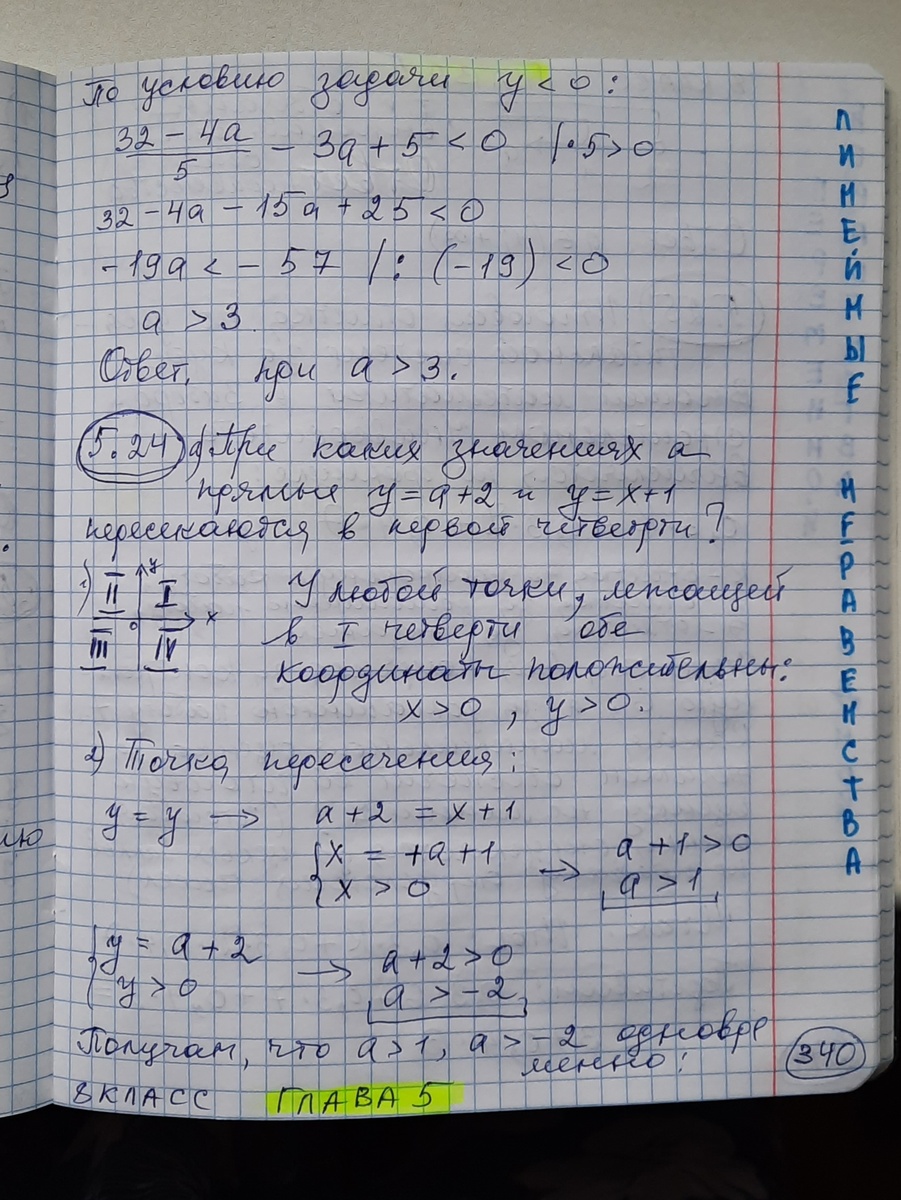 По условию задачи y < 0 :
32 - 4a / 5 - 3a + 5 < 0 | · 5 > 0
32 - 4a - 15a + 25 < 0
- 19a < - 57 | : (-19) < 0
a > 3
Ответ. при a > 3.
5.24 При каких значениях a
прямые y = a + 2 и y = x + 1
пересекаются в первой четверти?
1) II I III IV y x 0
У любой точки, лежащей
в I четверти обе
координаты положительны:
x > 0 , y > 0.
2) Точка пересечения :
y = y → a + 2 = x + 1
{ x = + a + 1
x > 0 → a + 1 > 0
a > 1
{ y = a + 2
y > 0 → a + 2 > 0
a > - 2
Получам, что a > 1, a > - 2 одновре
менно :
8 КЛАСС ГЛАВА 5
340
ЛИНЕЙНЫЕ НЕРАВЕНСТВА